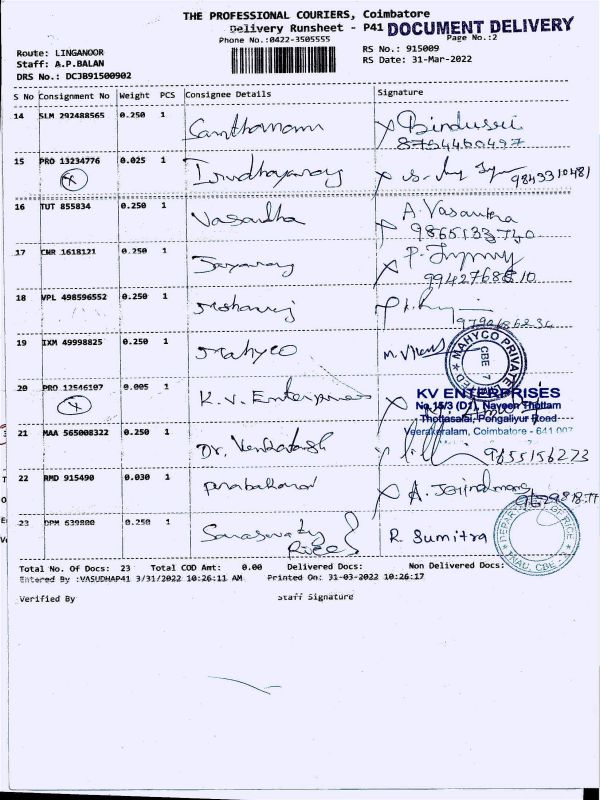 THE PROFESSIONAL COURIERS, Coimbatore
Delivery Runsheet - P41 DOCUMENT DELIVERY
Phone No.:0422-3505555
Page No.:2
Route: LINGANOOR
RS No.: 915009
Staff: A.P.BALAN
RS Date: 31-Mar-2022
DRS No.: DCJB91500902
S No Consignment No Weight PCS Consignee Details Signature
14 SLM 292488565 0.250 1 Bindusri
8754460497
15 PRO 13234776 0.025 1 9843310481
x
16 TUT 855834 0.250 1 Vasantha A. Vasantha
9865133740
17 CWR 1618121 0.250 1 Jeyaraj
18 VPL 498596552 0.250 1
19 IXM 49998825 0.250 1 Mahyco
MAHYCO PRIVATE
CBE
20 PRO 12546107 0.005 1 K.V. Enterprises
x
KV ENTERPRISES
No.15/3 (D1), Naveen Thottam
Thottasalai, Pongaliyur Road
Veerakeralam, Coimbatore - 641 007
21 MAA 565008322 0.250 1 Dr. Venkatesh 9655156273
22 RMD 915490 0.030 1 Prabakaran
23 DPM 639800 0.250 1 Saraswathy R. Sumitra
Rices
TNAU, CBE
Total No. Of Docs: 23 Total COD Amt: 0.00 Delivered Docs: Non Delivered Docs:
Entered By :VASUDHAP41 3/31/2022 10:26:11 AM Printed On: 31-03-2022 10:26:17
Verified By Staff Signature